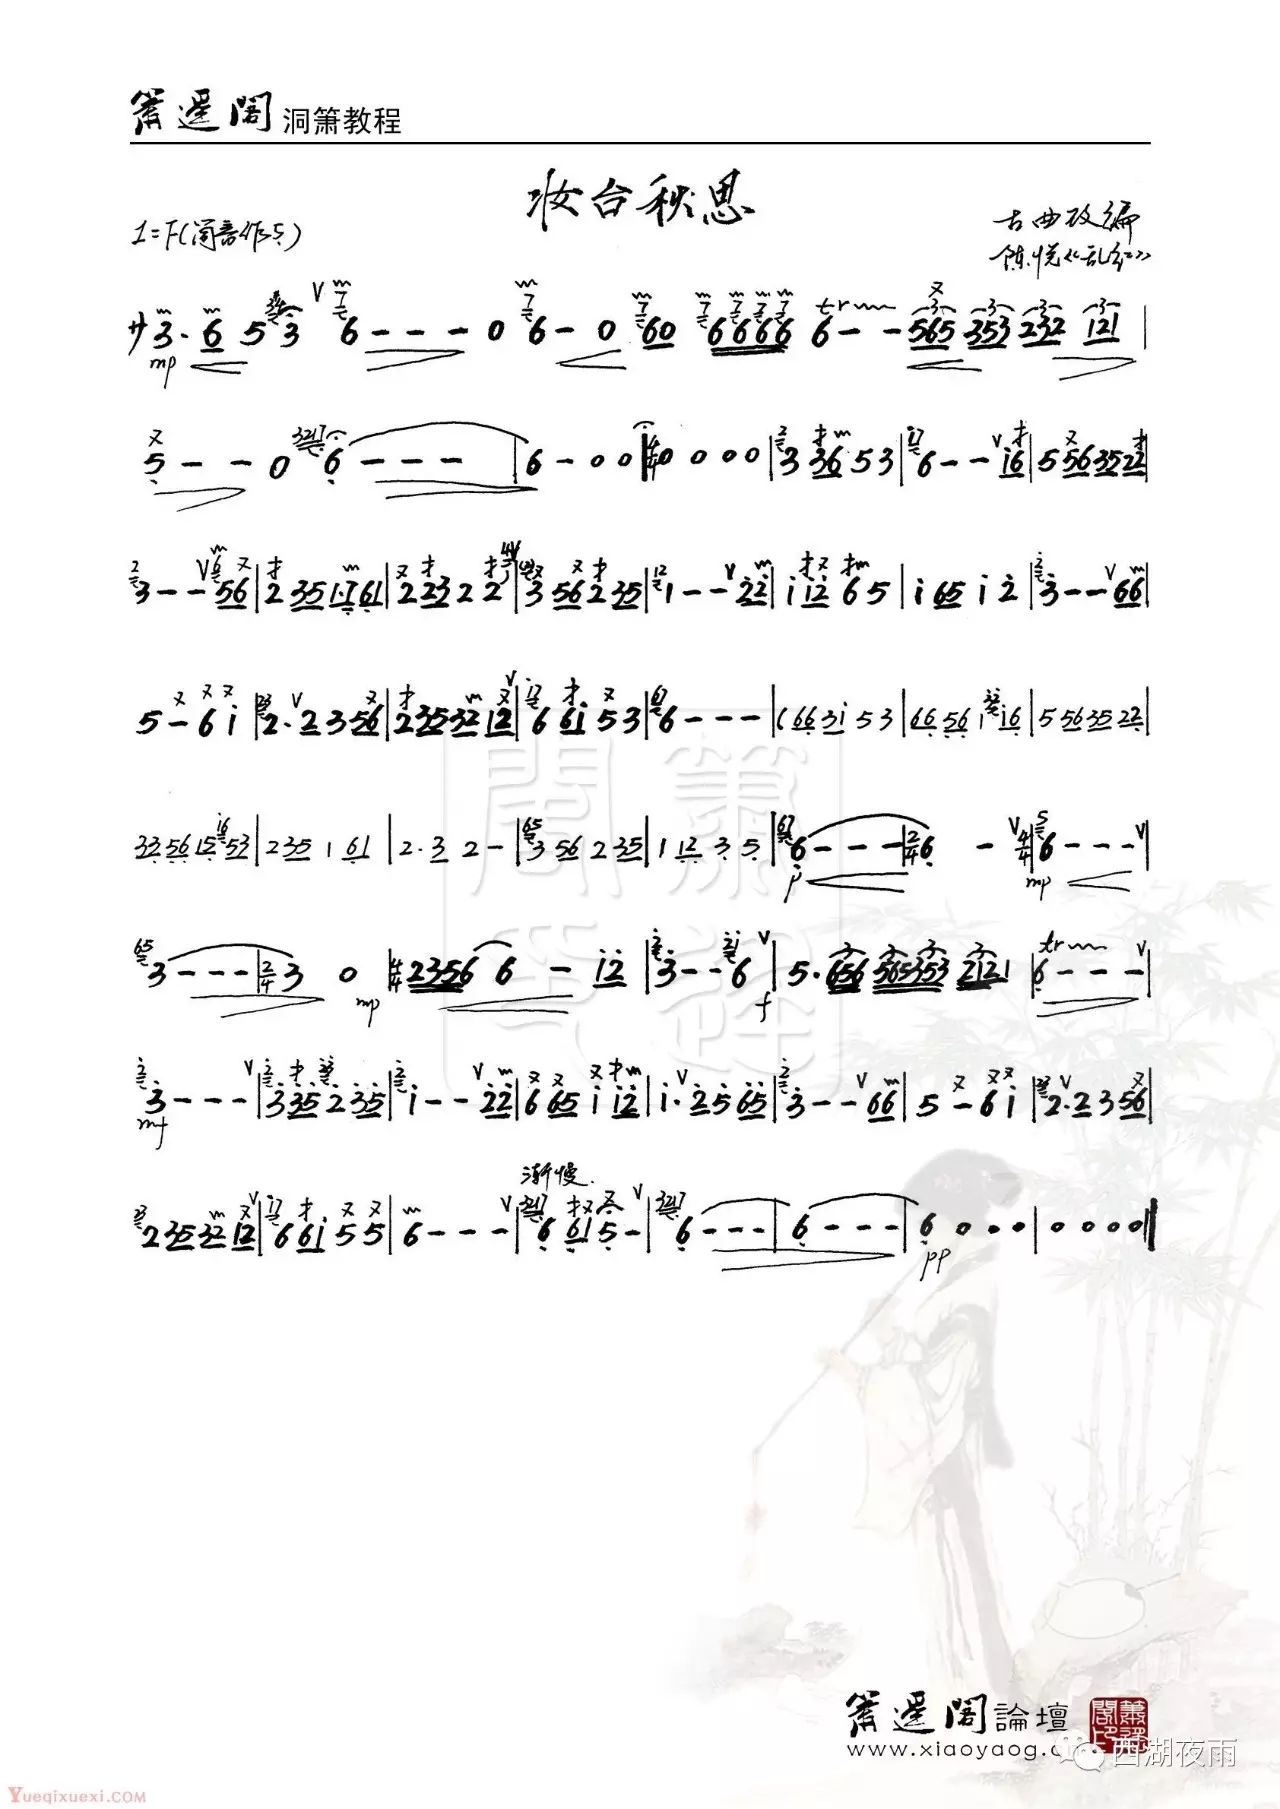 箫遥阁 洞箫教程
妆台秋思
1=F(筒音作5)
古曲改编
陈悦《乱红》
サ3·6 5 3 6 - - - 0 6 - 0 60 6666 6 - - 565 353 232 121
5 - - 0 6 - - - | 6 - 0 0 | 4/4 0 0 0 0 | 3 36 5 3 | 6 - - i6 | 5 56 35 22 |
3 - - 56 | 2 35 1·7 61 | 2 23 2 2 | 3 56 2 35 | 1 - - 22 | i i2 6 5 | i 65 i 2 | 3 - - 66 |
5 - 6 i | 2·2 3 56 | 2 35 32 12 | 6 6i 5 3 | 6 - - - | (66 3i 5 3 | 66 56 1 16 | 5 56 35 22 |
33 56 15 53 | 2 35 1 61 | 2·3 2 - | 3 56 2 35 | 1 12 3 5 | 6 - - - | 2/4 6 - | 4/4 6 - - - |
p mp
3 - - - | 2/4 3 0 | 4/4 2356 6 - i2 | 3 - - 6 | 5·656 565353 2121 | 6 - - - |
mp f
3 - - - | 3 35 2 35 | i - - 22 | 6 65 i i2 | i·2 5 65 | 3 - - 66 | 5 - 6 i | 2·2 3 56 |
mf
渐慢
2 35 32 12 | 6 6i 5 5 | 6 - - - | 6 61 5 - | 6 - - - | 6 - - - | 6 0 0 0 | 0 0 0 0 ‖
pp
箫遥阁論壇
www.xiaoyaog.c
西湖夜雨
Yueqixuexi.com